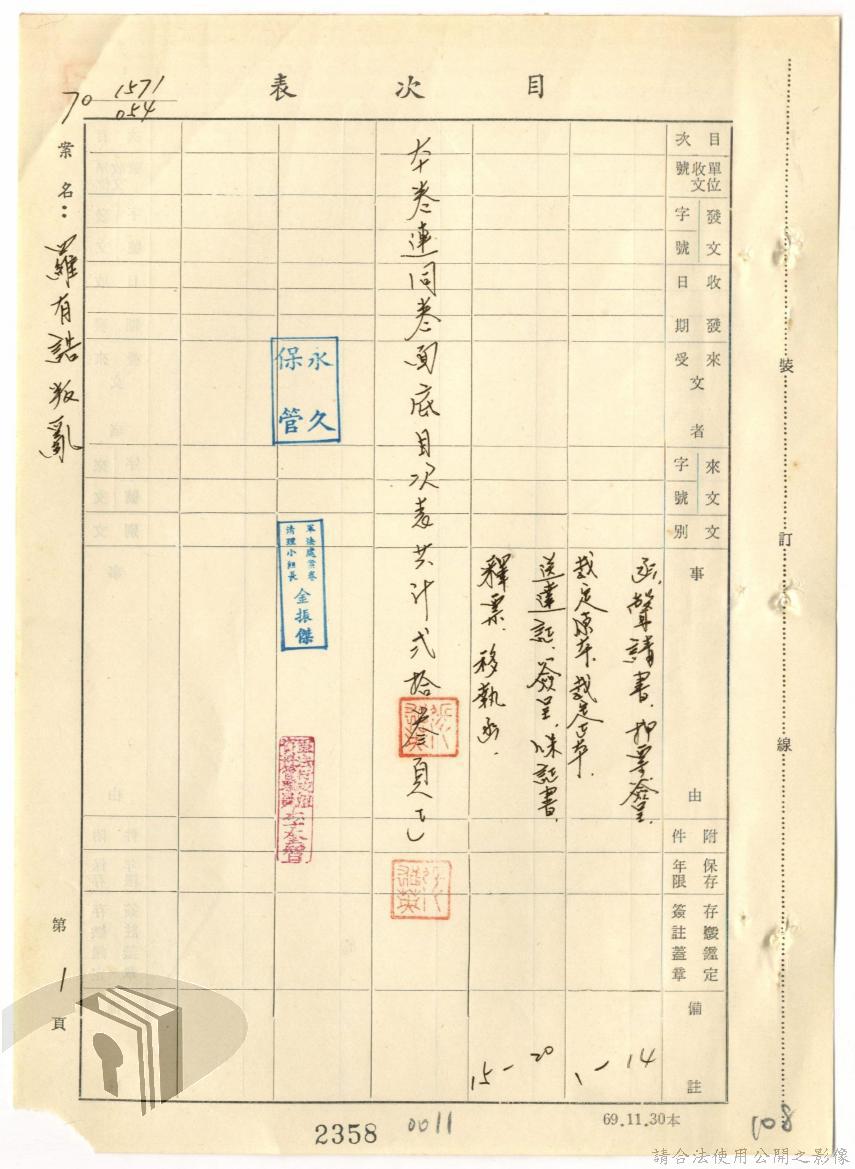 目次表
70 1571
054
案名：羅有誥叛亂
目次
單位收文號
發文字號
收發日期
來文受者
來文字號
文別
事由
附件
保存年限
存燬鑑定簽註蓋章
備註
函.聲請書.押票.簽呈.
裁定原本.裁定正本.
1-14
送達証.簽呈.保証書.
釋票.移執函.
15-20
本卷連同卷面底目次表共計弍拾叁頁正
永久保管
軍法處案卷清理小組長
金振傑
第1頁
裝訂線
2358
0011
69.11.30本
108
請合法使用公開之影像